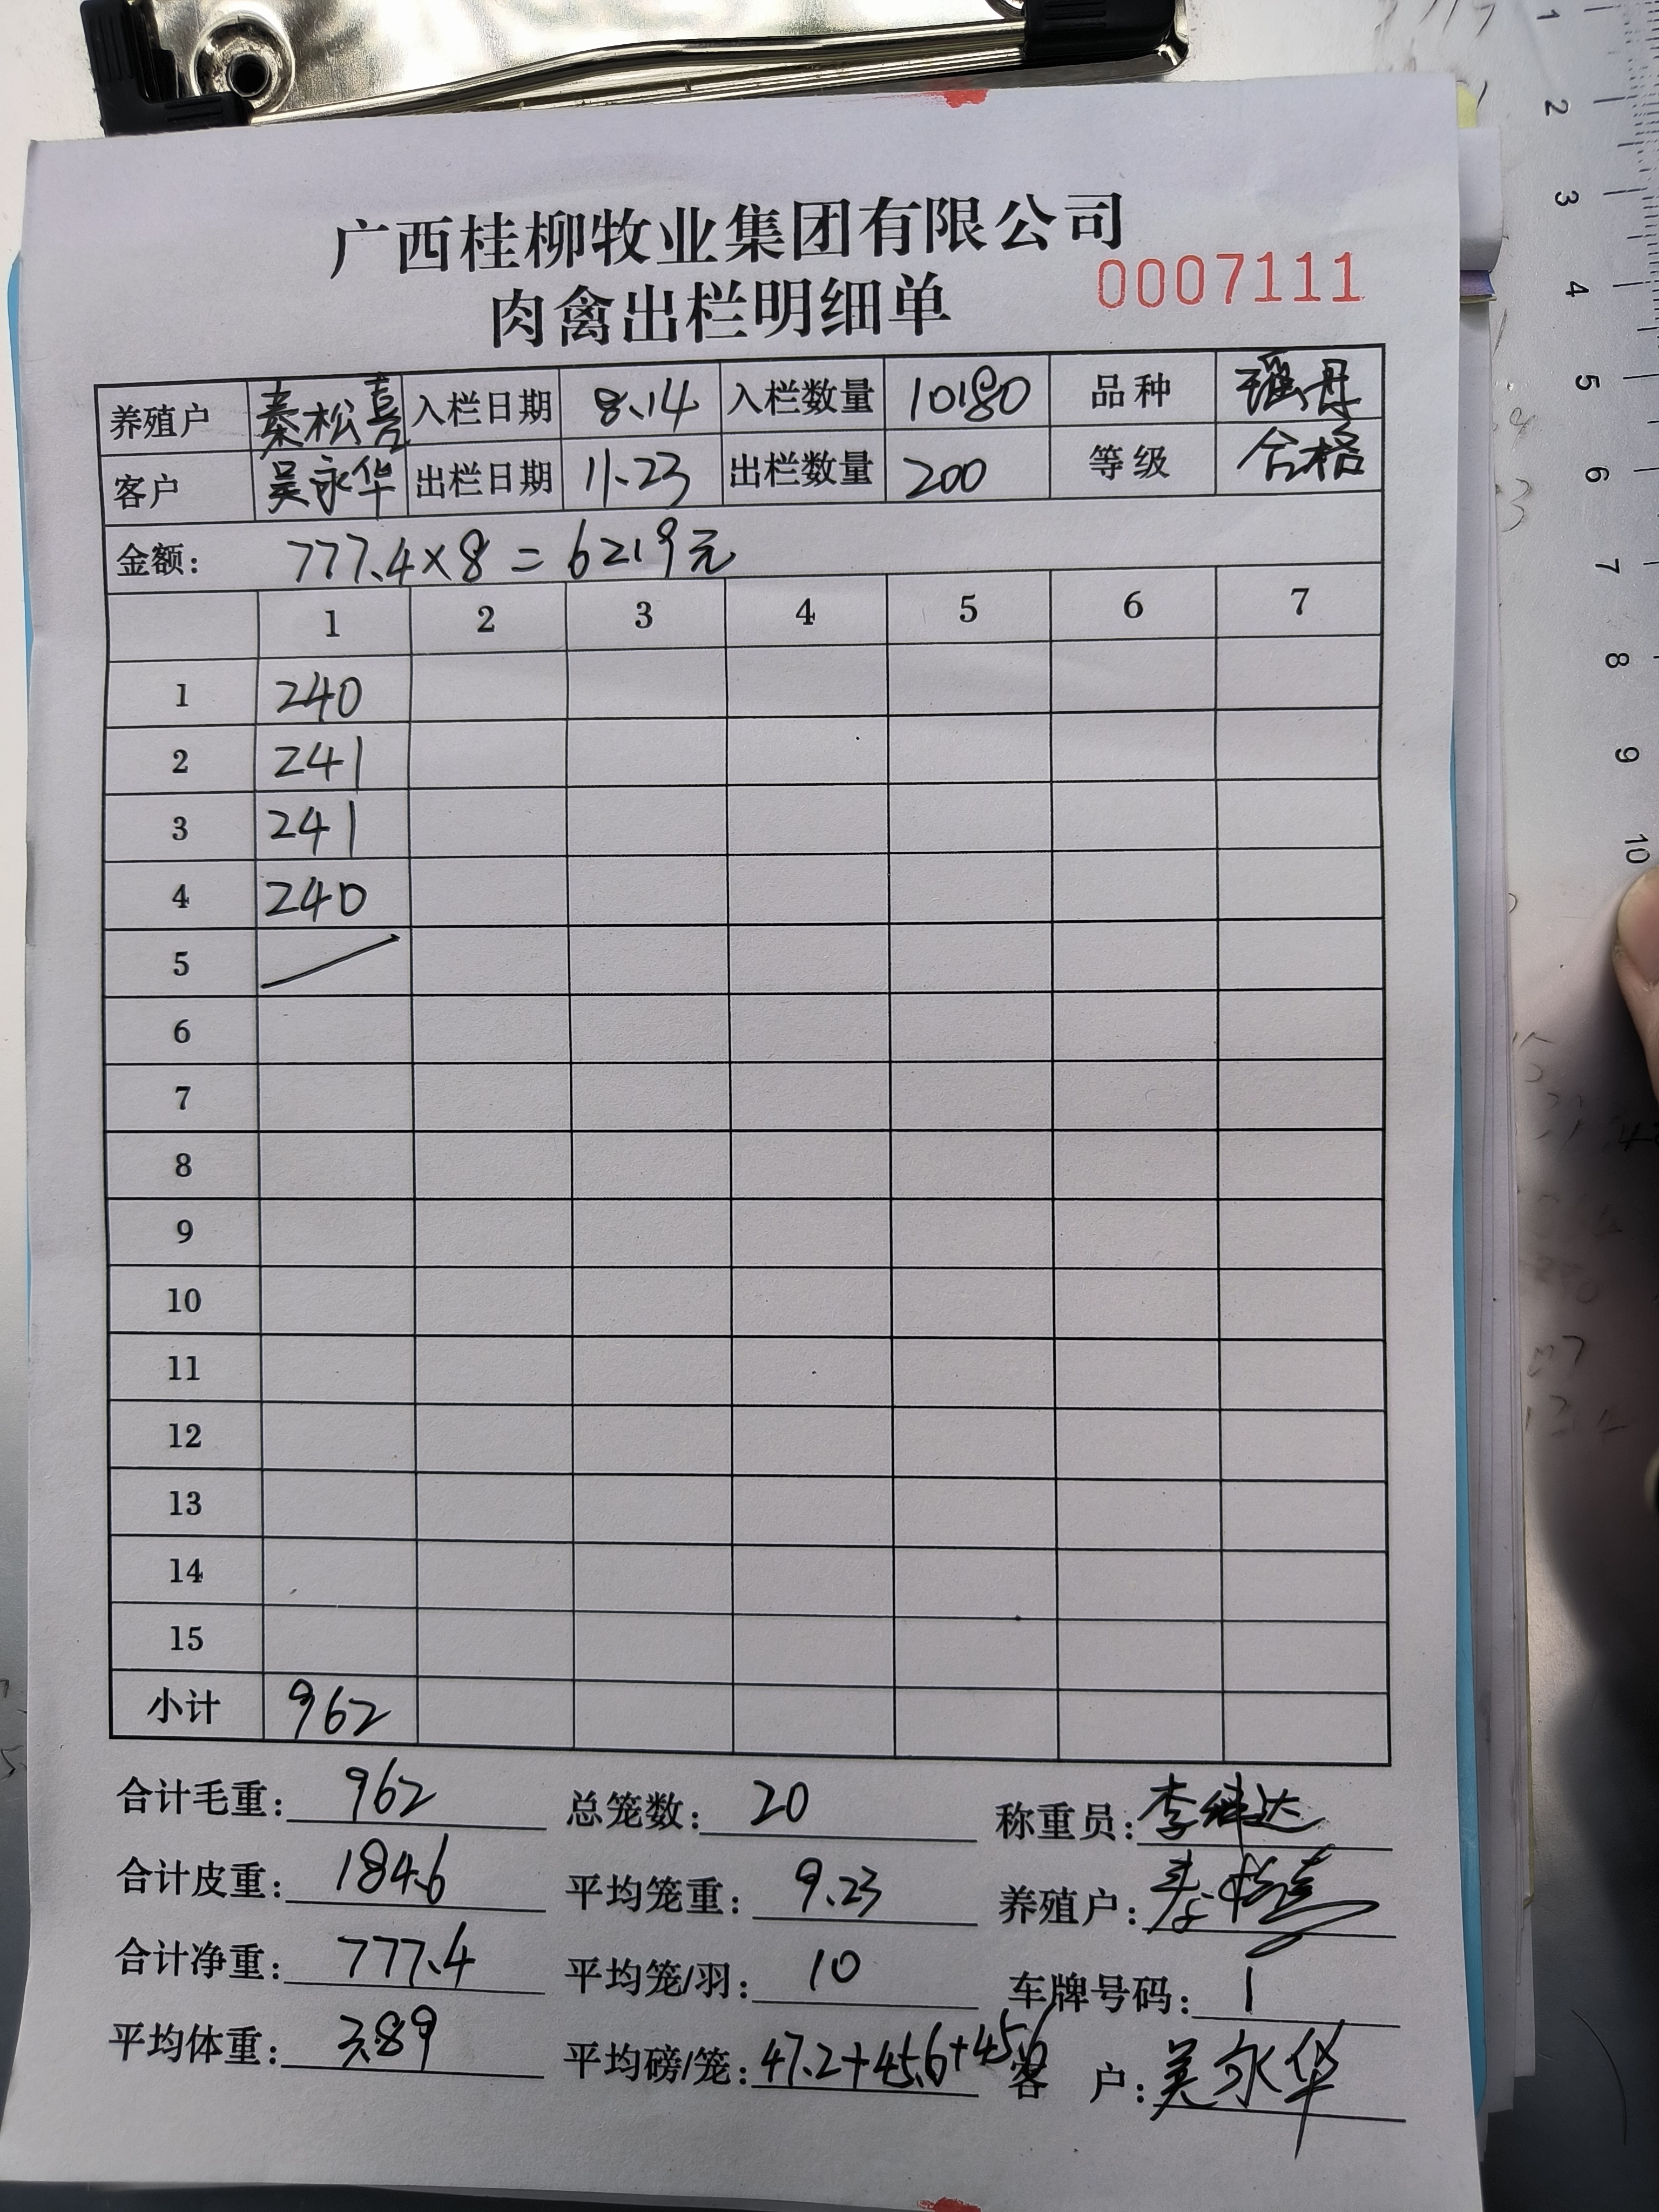 广西桂柳牧业集团有限公司
肉禽出栏明细单 0007111
养殖户 秦松喜 入栏日期 8.14 入栏数量 10180 品种 瑶丹
客户 吴永华 出栏日期 11.23 出栏数量 200 等级 合格
金额: 777.4×8=6219元
1 2 3 4 5 6 7
1 240
2 241
3 241
4 240
5
6
7
8
9
10
11
12
13
14
15
小计 962
合计毛重: 962 总笼数: 20 称重员: 李继达
合计皮重: 184.6 平均笼重: 9.23 养殖户: 秦松喜
合计净重: 777.4 平均笼/羽: 10 车牌号码: 1
平均体重: 3.89 平均磅/笼: 47.2+45.6+45.6 客 户: 吴永华
1
2
3
4
5
6
7
8
9
10